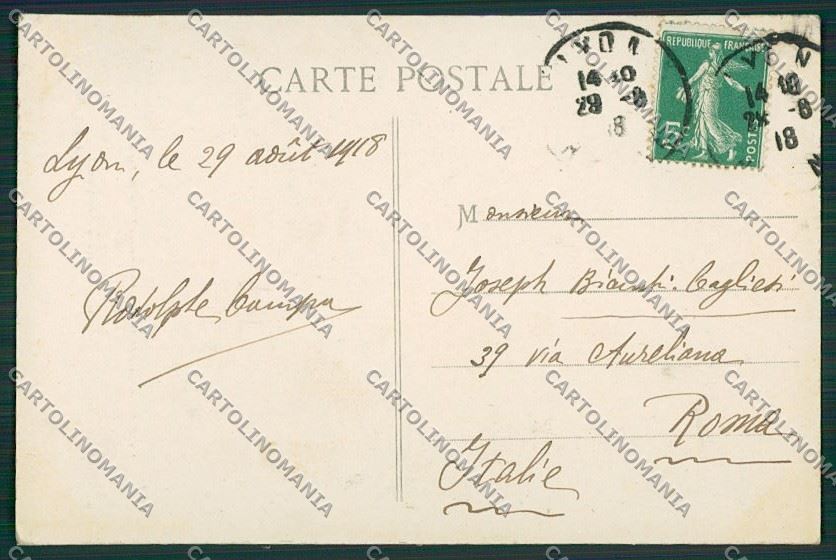 CARTE POSTALE
Lyon, le 29 août 1918
Rodolphe
Monsieur
Joseph
39 via Aureliana
Roma
Italie
LYON
14 10
29 -8
18
14 10
29 -8
18
REPUBLIQUE FRANÇAISE
5c
POSTES
CARTOLINOMANIA